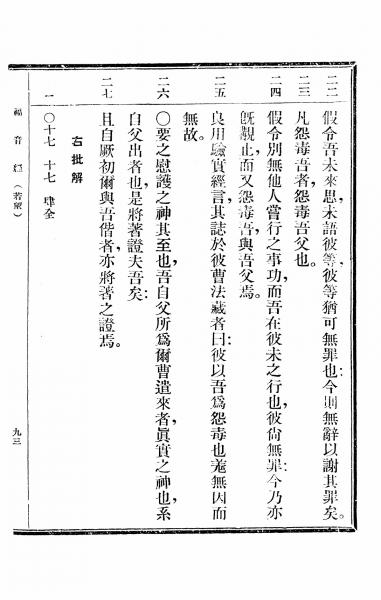 二二 假令吾未來思、未語彼等、彼等猶可無罪也；今則無辭以謝其罪矣。
二三 凡怨毒吾者、怨毒吾父也。
二四 假令別無他人嘗行之事功、而吾在彼未之行也、彼尙無罪；今乃亦
旣覩止、而又怨毒吾與吾父焉。
二五 良用驗實經言、其誌於彼曹法藏者曰：彼以吾爲怨毒也、無因而
無故。
二六 〇要之慰護之神其至也、吾自父所爲爾曹遣來者、眞實之神也、系
自父出者也、是將著證夫吾矣；
二七 且自厥初爾與吾偕者、亦將著之證焉。
右批解
一 〇十七 十七 肆全
福音經（若望）
九三